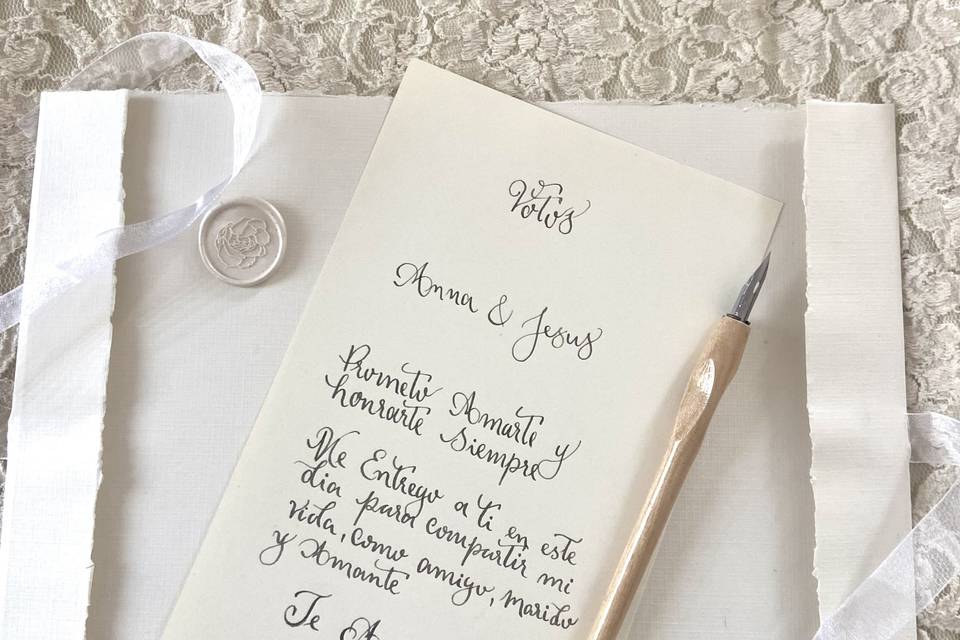 Votos
Anna & Jesus
Prometo Amarte y
honrarte siempre
Me Entrego a ti en este
dia para compartir mi
vida, como amigo, marido
y Amante
Te A